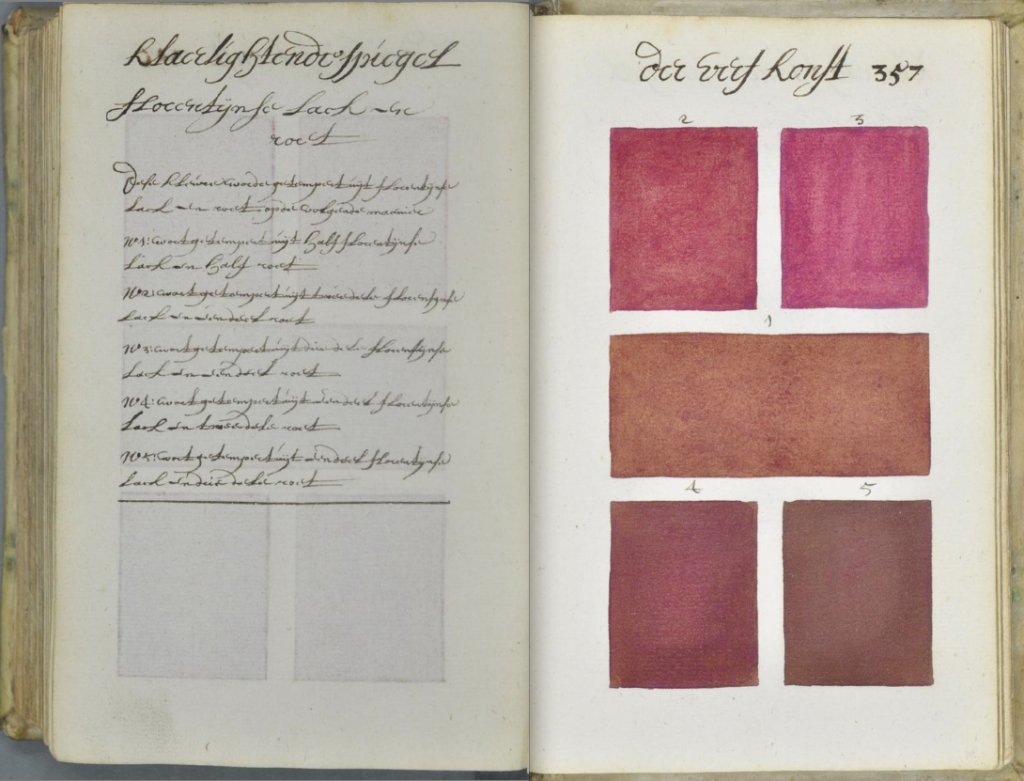 klaerlightende spiegel
florentijnse lack en
roet
dese kleuren worden getempert uijt florentijnse
lack en roet op de volgende manier
No 1: wort getempert uijt half florentijnse
lack en half roet
No 2: wort getempert uijt twee dele florentijnse
lack en een deel roet
No 3: wort getempert uijt drie dele florentijnse
lack en een deel roet
No 4: wort getempert uijt een deel florentijnse
lack en twee dele roet
No 5: wort getempert uijt een deel florentijnse
lack en drie dele roet
der verf konst 357
2 3
1
4 5